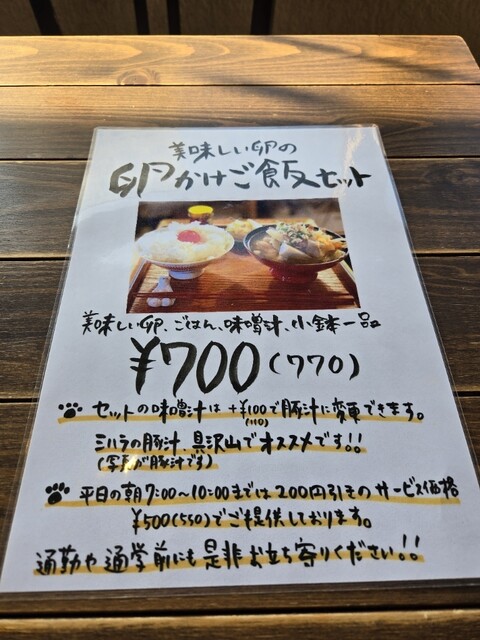 美味しい卵の
卵かけご飯セット
美味しい卵、ごはん、味噌汁、小鉢一品
¥700(770)
セットの味噌汁は+¥100で豚汁に変更できます。
(110)
ミハラの豚汁、具沢山でオススメです!!
(写真が豚汁です)
平日の朝7:00~10:00までは200円引きのサービス価格
¥500(550)でご提供しております。
通勤や通学前にも是非お立ち寄りください!!